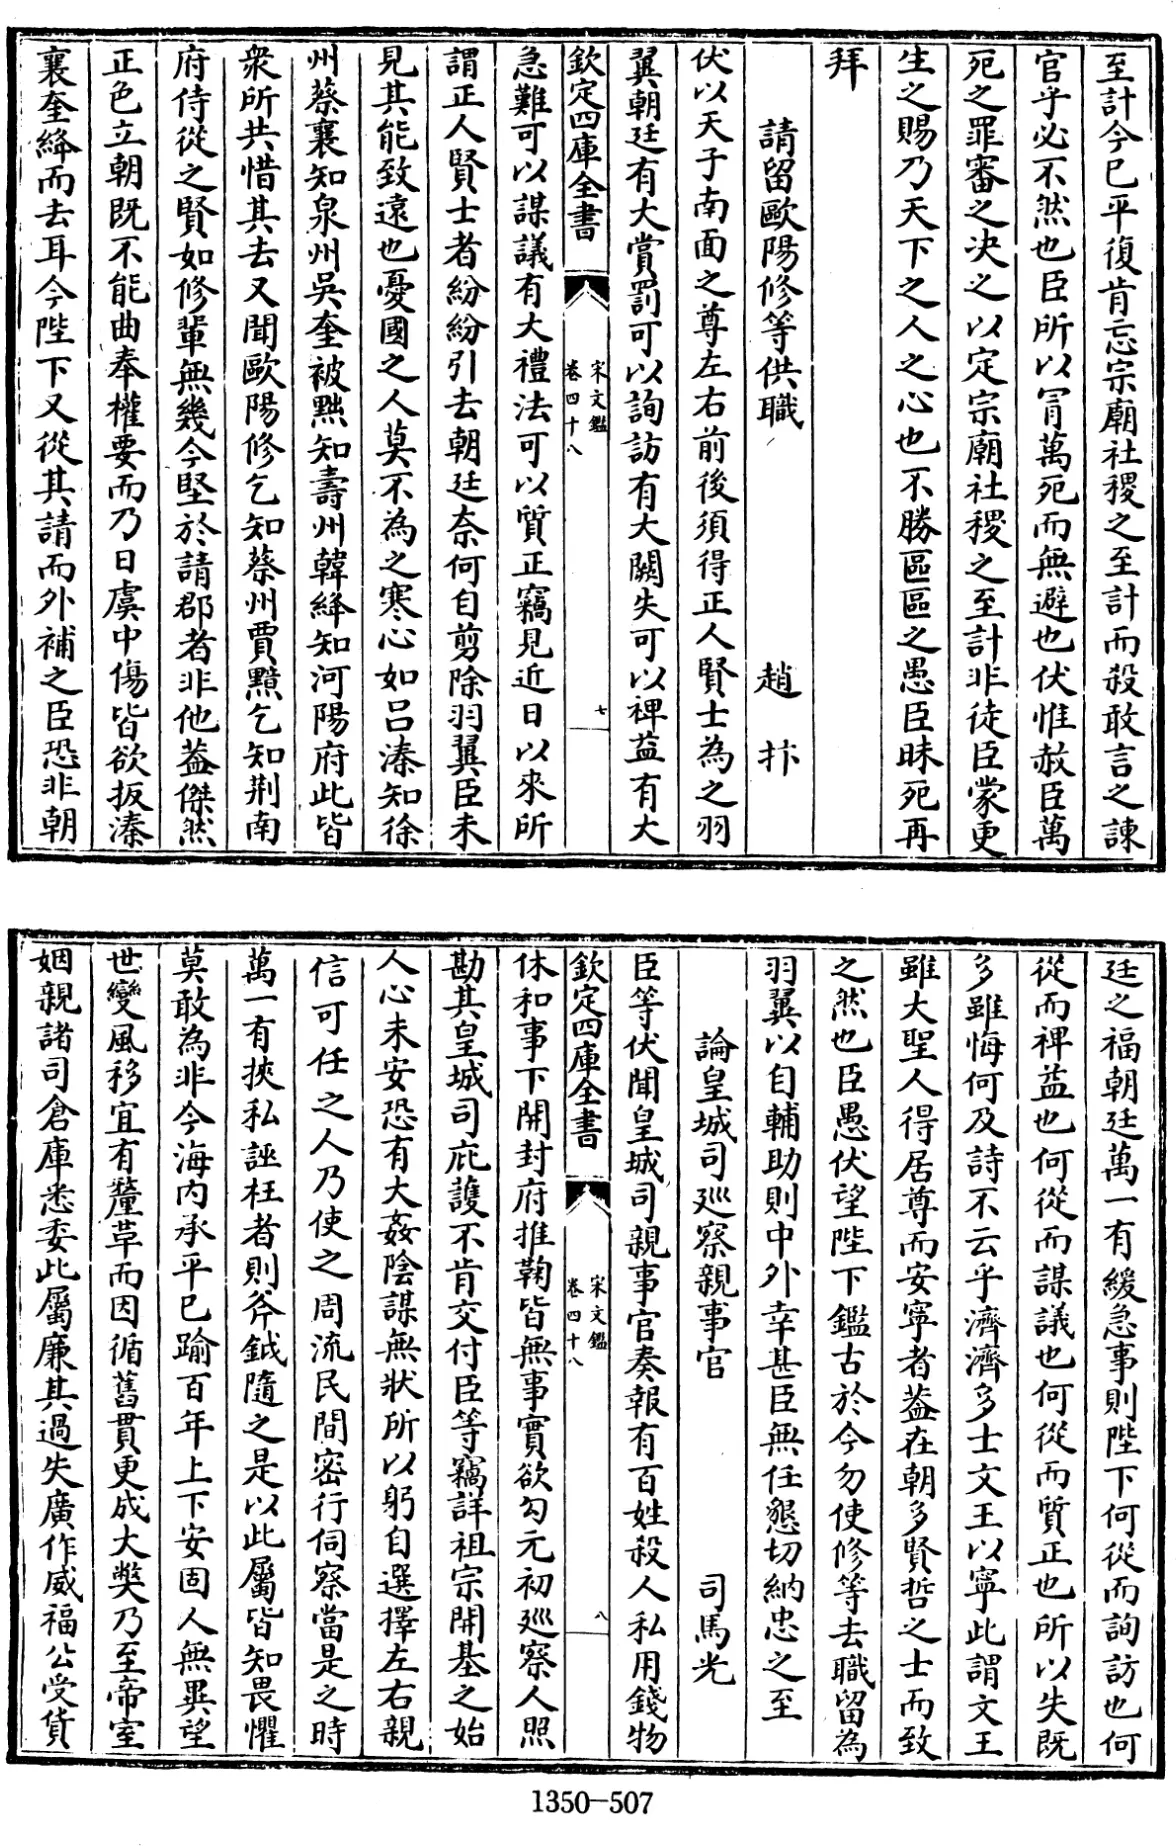 至計今已平復肯忘宗廟社稷之至計而殺敢言之諫
官乎必不然也臣所以冒萬死而無避也伏惟赦臣萬
死之罪審之決之以定宗廟社稷之至計非徒臣蒙更
生之賜乃天下之人之心也不勝區區之愚臣昧死再
拜
請留歐陽修等供職 趙抃
伏以天子南面之尊左右前後須得正人賢士為之羽
翼朝廷有大賞罰可以詢訪有大闕失可以裨益有大
欽定四庫全書 宋文鑑 卷四十八 七
急難可以謀議有大禮法可以質正竊見近日以來所
謂正人賢士者紛紛引去朝廷奈何自剪除羽翼臣未
見其能致遠也憂國之人莫不為之寒心如吕溱知徐
州蔡襄知泉州吳奎被黜知壽州韓絳知河陽府此皆
衆所共惜其去又聞歐陽修乞知蔡州賈黯乞知荆南
府侍從之賢如修輩無幾今堅於請郡者非他葢傑然
正色立朝既不能曲奉權要而乃日虞中傷皆欲扳溱
襄奎絳而去耳今陛下又從其請而外補之臣恐非朝
廷之福朝廷萬一有緩急事則陛下何從而詢訪也何
從而裨益也何從而謀議也何從而質正也所以失既
多雖悔何及詩不云乎濟濟多士文王以寧此謂文王
雖大聖人得居尊而安寧者葢在朝多賢哲之士而致
之然也臣愚伏望陛下鑑古於今勿使修等去職留為
羽翼以自輔助則中外幸甚臣無任懇切納忠之至
論皇城司廵察親事官 司馬光
臣等伏聞皇城司親事官奏報有百姓殺人私用錢物
欽定四庫全書 宋文鑑 卷四十八 八
休和事下開封府推鞫皆無事實欲勾元初廵察人照
勘其皇城司庇護不肯交付臣等竊詳祖宗開基之始
人心未安恐有大姦陰謀無狀所以躬自選擇左右親
信可任之人乃使之周流民間密行伺察當是之時
萬一有挾私誣枉者則斧鉞隨之是以此屬皆知畏懼
莫敢為非今海内承平已踰百年上下安固人無異望
世變風移宜有釐革而因循舊貫更成大獘乃至帝室
姻親諸司倉庫悉委此屬廉其過失廣作威福公受貨
1350—507